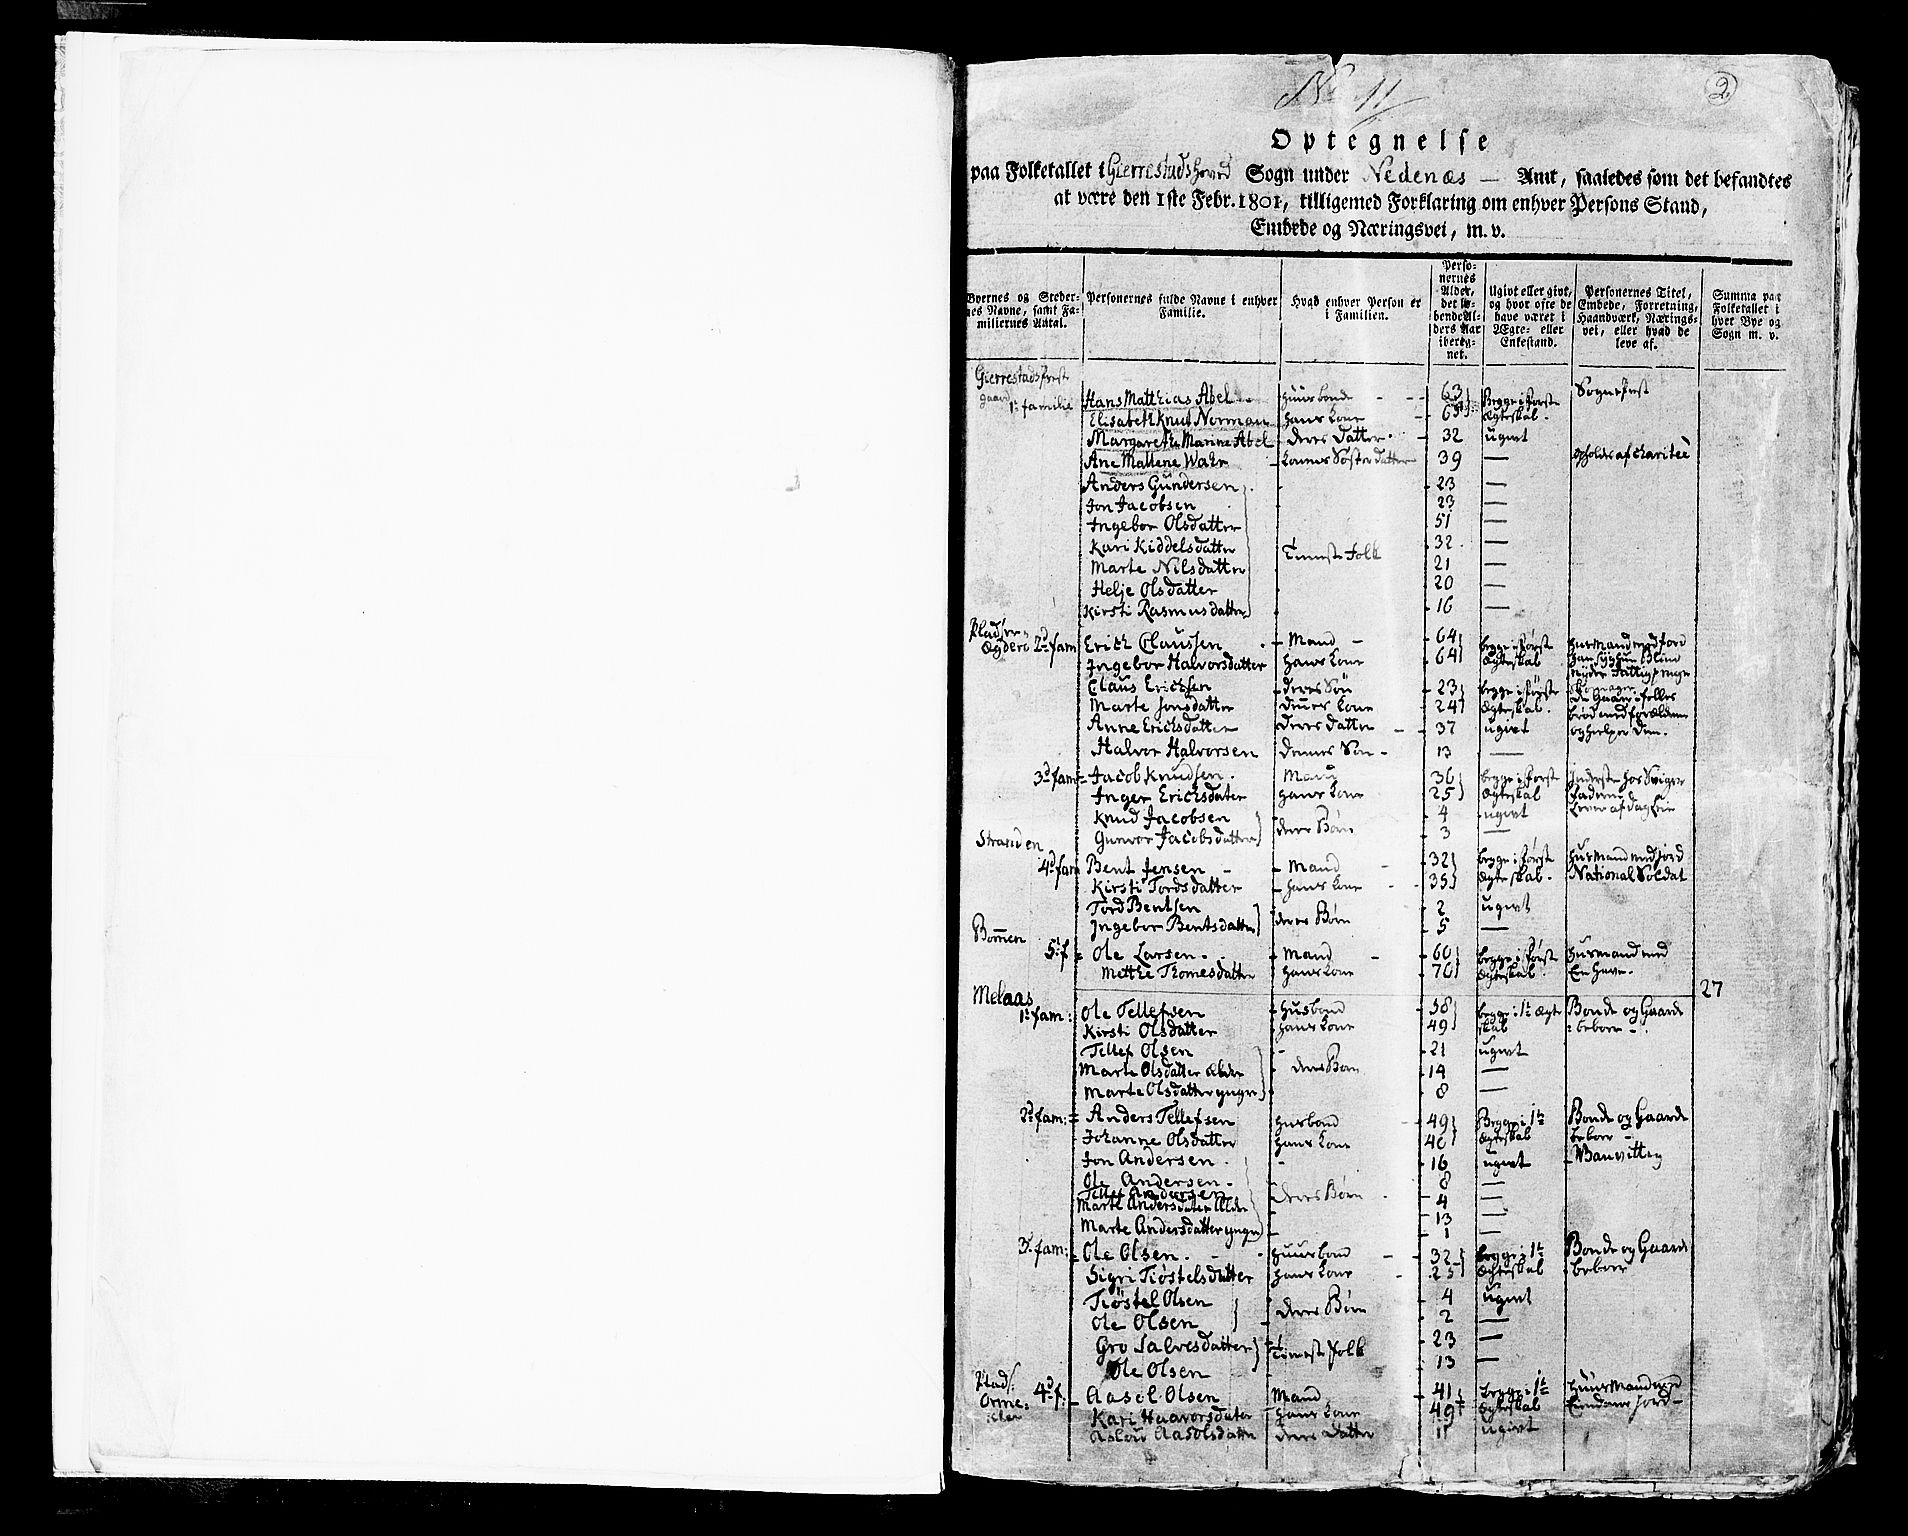 No 11
2
Optegnelse
paa Folketallet i Gierrestads hoved Sogn under Nedenæs — Amt, saaledes som det befandtes
at være den 1ste Febr. 1801, tilligemed Forklaring om enhver Persons Stand,
Embede og Næringsvei, m. v.
Byernes og Stedernes Navne, samt Familiernes Antal.
Personernes fulde Navne i enhver Familie.
Hvad enhver Person er i Familien.
Personernes Alder, det løbende Alders Aar iberegnet.
Ugivt eller givt, og hvor ofte de have været i Ægte- eller Enkestand.
Personernes Titel, Embede, Forretning, Haandværk, Næringsvei, eller hvad de leve af.
Summa paa Folketallet i hver Bye og Sogn m. v.
Gierrestads Præstgaard
1t familie Hans Matthias Abel huusbonde 63 Begge i første Sognepræst
Elisabeth Knud Norman hans kone 65 ægteskab.
Margarethe Marine Abel deres datter 32 ugivt
Ane Mallene Wahr konens Søster datter 39 — opholdes af charitee
Anders Gundersen 23 —
Jon Jacobsen 23 —
Ingebor Olsdatter 51 —
Kari Kiddelsdatter Tieneste Folk 32 —
Marte Nilsdatter 21 —
Helje Olsdatter 20 —
Kirsti Rasmusdatter 16 —
Pladser
2d fam Erich Claussen Mand 64 begge i første husmand med jord
Ingebor Halvorsdatter hans kone 64 ægteskab
Claus Erichsen deres Søn 23 begge i første
Marte Jonsdatter dennes kone 24 ægteskab.
Anne Erichsdatter deres datter 37 ugivt og hielper dem.
Halvor Halvorsen dennes Søn 13 —
3d fam Jacob Knudsen Mand 36 begge i første Inderste hos Sviger
Inger Ericksdater hans kone 25 ægteskab faderen
Knud Jacobsen 4 ugivt
Gunvor Jacobsdatter deres Børn 3 —
Stranden
4d fam Bent Jensen Mand 32 begge i første husmand med jord
Kirsti Tordsdatter hans kone 35 ægteskab. National Soldat
Tord Bentsen 2 ugivt
Ingebor Bentsdatter deres Børn 5 —
Bommen
5t f Ole Larsen Mand 60 begge i første husmand med
Metthe Thomesdatter hans kone 70 ægteskab. En have.
27
Melaas
1t fam: Ole Tellefsen husbond 58 begge i 1t ægte Bonde og Gaard
Kirsti Olsdatter hans kone 49 skab beboer
Tellef Olsen 21 ugivt
Marte Olsdatter ældre deres Børn 14 —
Marte Olsdatter yngre 8 —
2d fam: Anders Tellefsen husbond 49 Begge i 1te Bonde og Gaard
Johanne Olsdatter hans kone 40 ægteskab beboer
Jon Andersen 16 ugivt Vanvittig
Ole Andersen 8 —
Tellef Andersen deres Børn 4 —
Marte Andersdater ældre 13 —
Marte Andersdatter yngre 1 —
3d fam: Ole Olsen huusbond 32 begge i 1te Bonde og Gaard
Sigri Tiøstelsdatter hans kone 25 ægteskab beboer
Tiøstel Olsen 4 ugivt
Ole Olsen deres Børn 2 —
Gro Salvesdatter Tieneste folk 23 —
Ole Olsen 13 —
Plads:
4d f: Aasol Olsen Mand 41 begge i 1te huusmand
Kari Haavorsdater hans kone 49 ægteskab jord
Aslou Aasolsdatter deres datter 11 ugivt